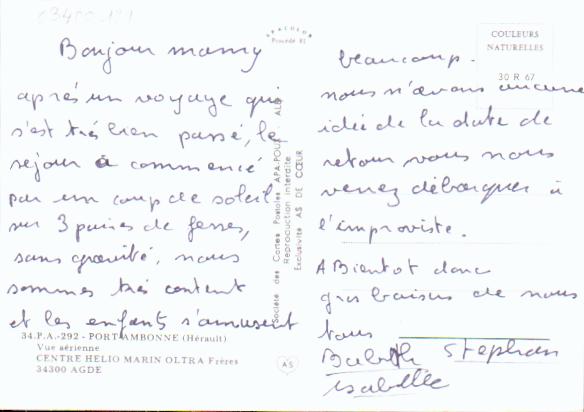 03400-121
Bonjour mamy
après un voyage qui
s'est très bien passé, le
séjour a commencé
par un coup de soleil
sur 3 paires de fesses,
sans gravité, nous
sommes très content
et les enfants s'amusent
34.P.A.-292 - PORT AMBONNE (Hérault)
Vue aérienne
CENTRE HELIO MARIN OLTRA Frères
34300 AGDE
APACOLOR
Procédé 81
Société des Cartes Postales APA-POUX - ALBI
Reproduction interdite
Exclusivité AS DE CŒUR
AS
COULEURS
NATURELLES
30 R 67
beaucoup.
nous n'avons aucune
idée de la date de
retour vous nous
verrez débarquer à
l'improviste.
A Bientot donc
gros baisers de nous
tous
Babeth Stephan
isabelle